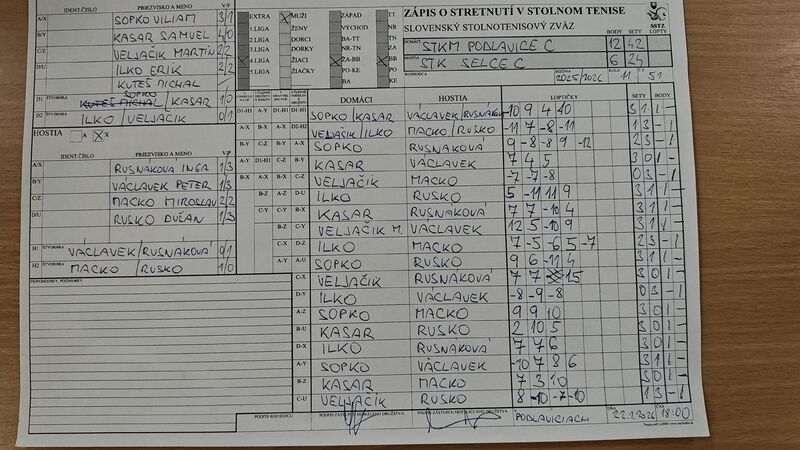 ZÁPIS O STRETNUTÍ V STOLNOM TENISE
SLOVENSKÝ STOLNOTENISOVÝ ZVÄZ
SSTZ
IDENT.ČÍSLO PRIEZVISKO A MENO V/P
A/X SOPKO VILIAM 3/1
B/Y KASAR SAMUEL 4/0
C/Z VELJAČIK MARTIN 2/2
D/U ILKO ERIK 2/2
KUTEŠ MICHAL
D1 ŠTVORHRA SOPKO /KASAR 1/0
D2 ŠTVORHRA ILKO / VELJAČIK 0/1
EXTRA MUŽI ZÁPAD TT
1 LIGA ŽENY VÝCHOD NR
2 LIGA DORCI BA-TT TN
3 LIGA DORKY NR-TN ZA
4 LIGA ŽIACI ZA-BB BB
5 LIGA ŽIAČKY PO-KE PO
BA KE
DOMÁCI STKM PODLAVICE C
HOSTIA STK SELCE C
BODY SETY LOPTY
12 42
6 24
ROZHODCA SEZÓNA 2025/2026 KOLO 11 Č. 51
HOSTIA A X
IDENT.ČÍSLO PRIEZVISKO A MENO V/P
A/X RUSNAKOVÁ INGA 1/3
B/Y VÁCLAVEK PETER 1/3
C/Z MACKO MIROSLAV 2/2
D/U RUSKO DUŠAN 1/3
H1 ŠTVORHRA VÁCLAVEK/RUSNAKOVÁ 0/1
H2 ŠTVORHRA MACKO / RUSKO 1/0
PRIPOMIENKY, POZNÁMKY
DOMÁCI HOSTIA LOPTIČKY SETY BODY
D1-H1 SOPKO/KASAR VÁCLAVEK/RUSNAKOVÁ -10 9 4 10 3 1 1 -
D2-H2 VELJAČIK/ILKO MACKO/RUSKO -11 7 -8 -11 1 3 - 1
SOPKO RUSNAKOVÁ 9 -8 -8 9 -12 2 3 - 1
KASAR VÁCLAVEK 7 4 5 3 0 1 -
VELJAČIK MACKO -7 -7 -8 0 3 - 1
ILKO RUSKO 5 -11 11 9 3 1 1 -
KASAR RUSNAKOVÁ 7 7 -10 4 3 1 1 -
VELJAČIK M. VÁCLAVEK 12 5 -10 9 3 1 1 -
ILKO MACKO 7 -5 -6 5 -7 2 3 - 1
A-U SOPKO RUSKO 9 6 -11 4 3 1 1 -
C-X VELJAČIK RUSNAKOVÁ 7 7 15 3 0 1 -
D-Y ILKO VÁCLAVEK -8 -9 -8 0 3 - 1
A-Z SOPKO MACKO 9 9 10 3 0 1 -
B-U KASAR RUSKO 2 10 5 3 0 1 -
D-X ILKO RUSNAKOVÁ 7 7 6 3 0 1 -
A-Y SOPKO VÁCLAVEK -10 7 8 6 3 1 1 -
B-Z KASAR MACKO 7 3 10 3 0 1 -
C-U VELJAČIK RUSKO 8 -10 -7 -10 1 3 - 1
PODPIS ROZHODCU PODPIS ZÁSTUPCU DOMÁCEHO DRUŽSTVA PODPIS ZÁSTUPCU HOSŤUJÚCEHO DRUŽSTVA V PODLAVICIACH DŇA 22.1.2026 ČAS 18:00